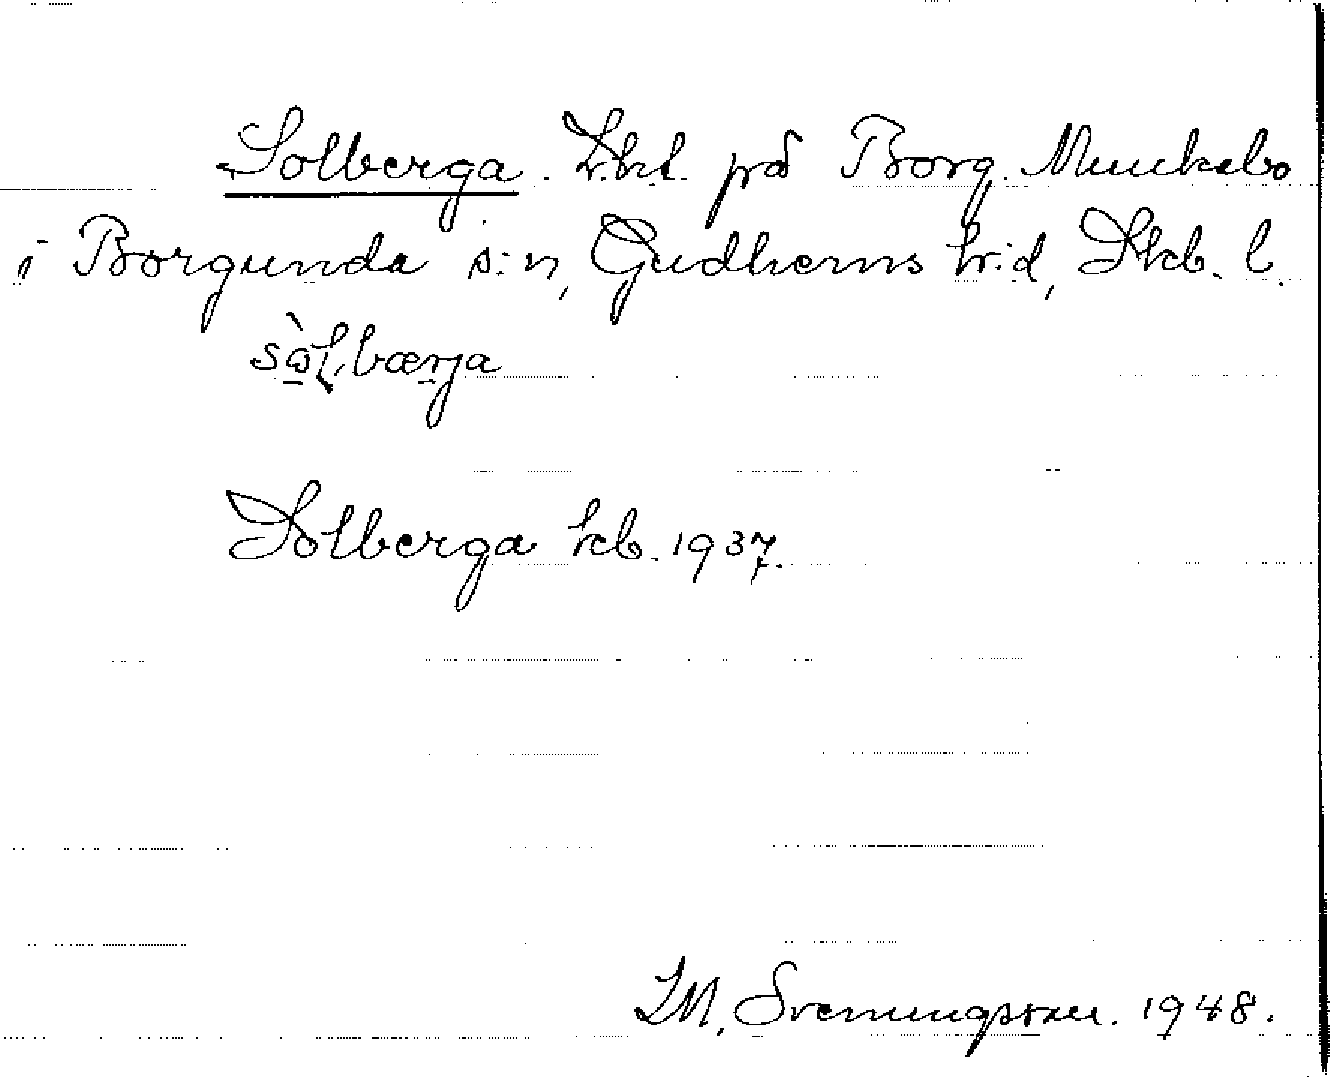 Solberga. Lht. på Borg. Munkabo
i Borgunda s:n, Gudhems h:d, Skb. l.
sò̱lbærja
Solberga kb. 1937.
I.M. Svenungsson. 1948.